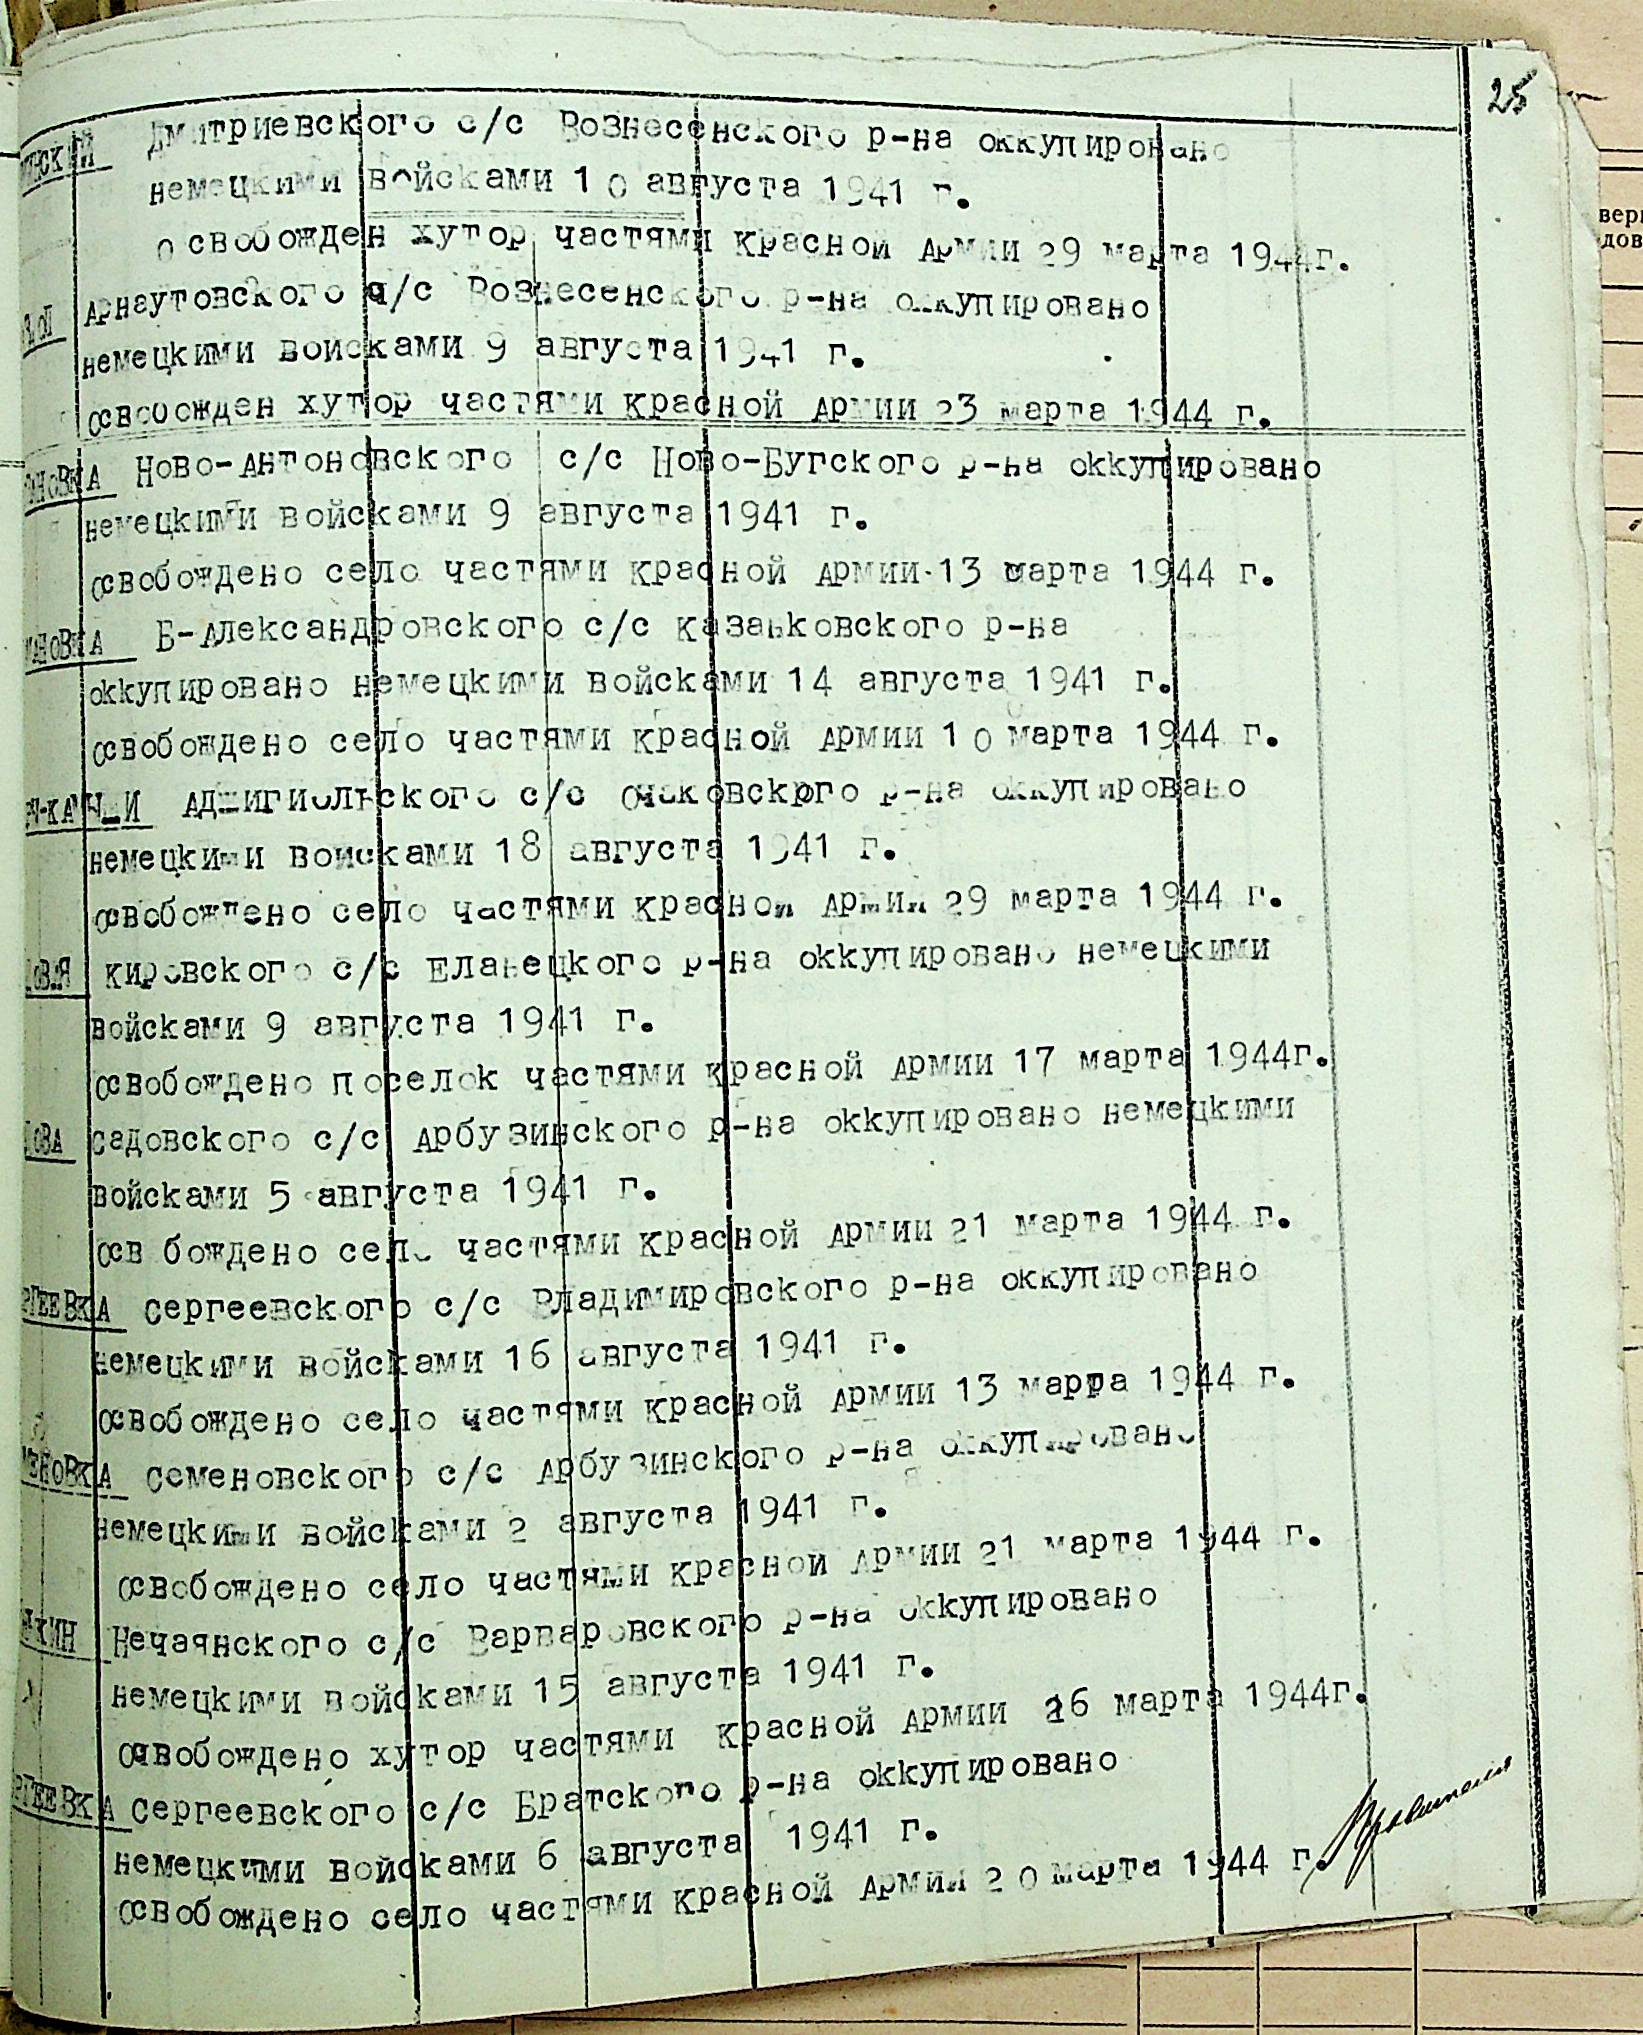 25
Дмитриевского с/с Вознесенского р-на оккупировано
немецкими войсками 10 августа 1941 г.
освобожден хутор частями красной армии 29 марта 1944г.
Арнаутовского с/с Вознесенского р-на оккупировано
немецкими войсками 9 августа 1941 г.
освобожден хутор частями красной армии 23 марта 1944 г.
НОВКА Ново-Антоновского с/с Ново-Бугского р-на оккупировано
немецкими войсками 9 августа 1941 г.
освобождено село частями красной армии 13 марта 1944 г.
АНОВКА Б-Александровского с/с казанковского р-на
оккупировано немецкими войсками 14 августа 1941 г.
освобождено село частями красной армии 10 марта 1944 г.
Аджигиольского с/с Очаковского р-на оккупировано
немецкими войсками 18 августа 1941 г.
освобождено село частями красной армии 29 марта 1944 г.
кировского с/с Еланецкого р-на оккупировано немецкими
войсками 9 августа 1941 г.
освобождено поселок частями красной армии 17 марта 1944г.
ДОВА садовского с/с Арбузинского р-на оккупировано немецкими
войсками 5 августа 1941 г.
осв бождено село частями красной армии 21 марта 1944 г.
РГЕЕВКА сергеевского с/с Владимировского р-на оккупировано
немецкими войсками 16 августа 1941 г.
освобождено село частями красной армии 13 марта 1944 г.
МЕНОВКА семеновского с/с Арбузинского р-на оккупировано
немецкими войсками 2 августа 1941 г.
освобождено село частями красной армии 21 марта 1944 г.
КИН Нечаянского с/с Варваровского р-на оккупировано
немецкими войсками 15 августа 1941 г.
освобождено хутор частями красной армии 26 марта 1944г.
РГЕЕВКА сергеевского с/с Братского р-на оккупировано
немецкими войсками 6 августа 1941 г.
освобождено село частями красной армии 20 марта 1944 г.